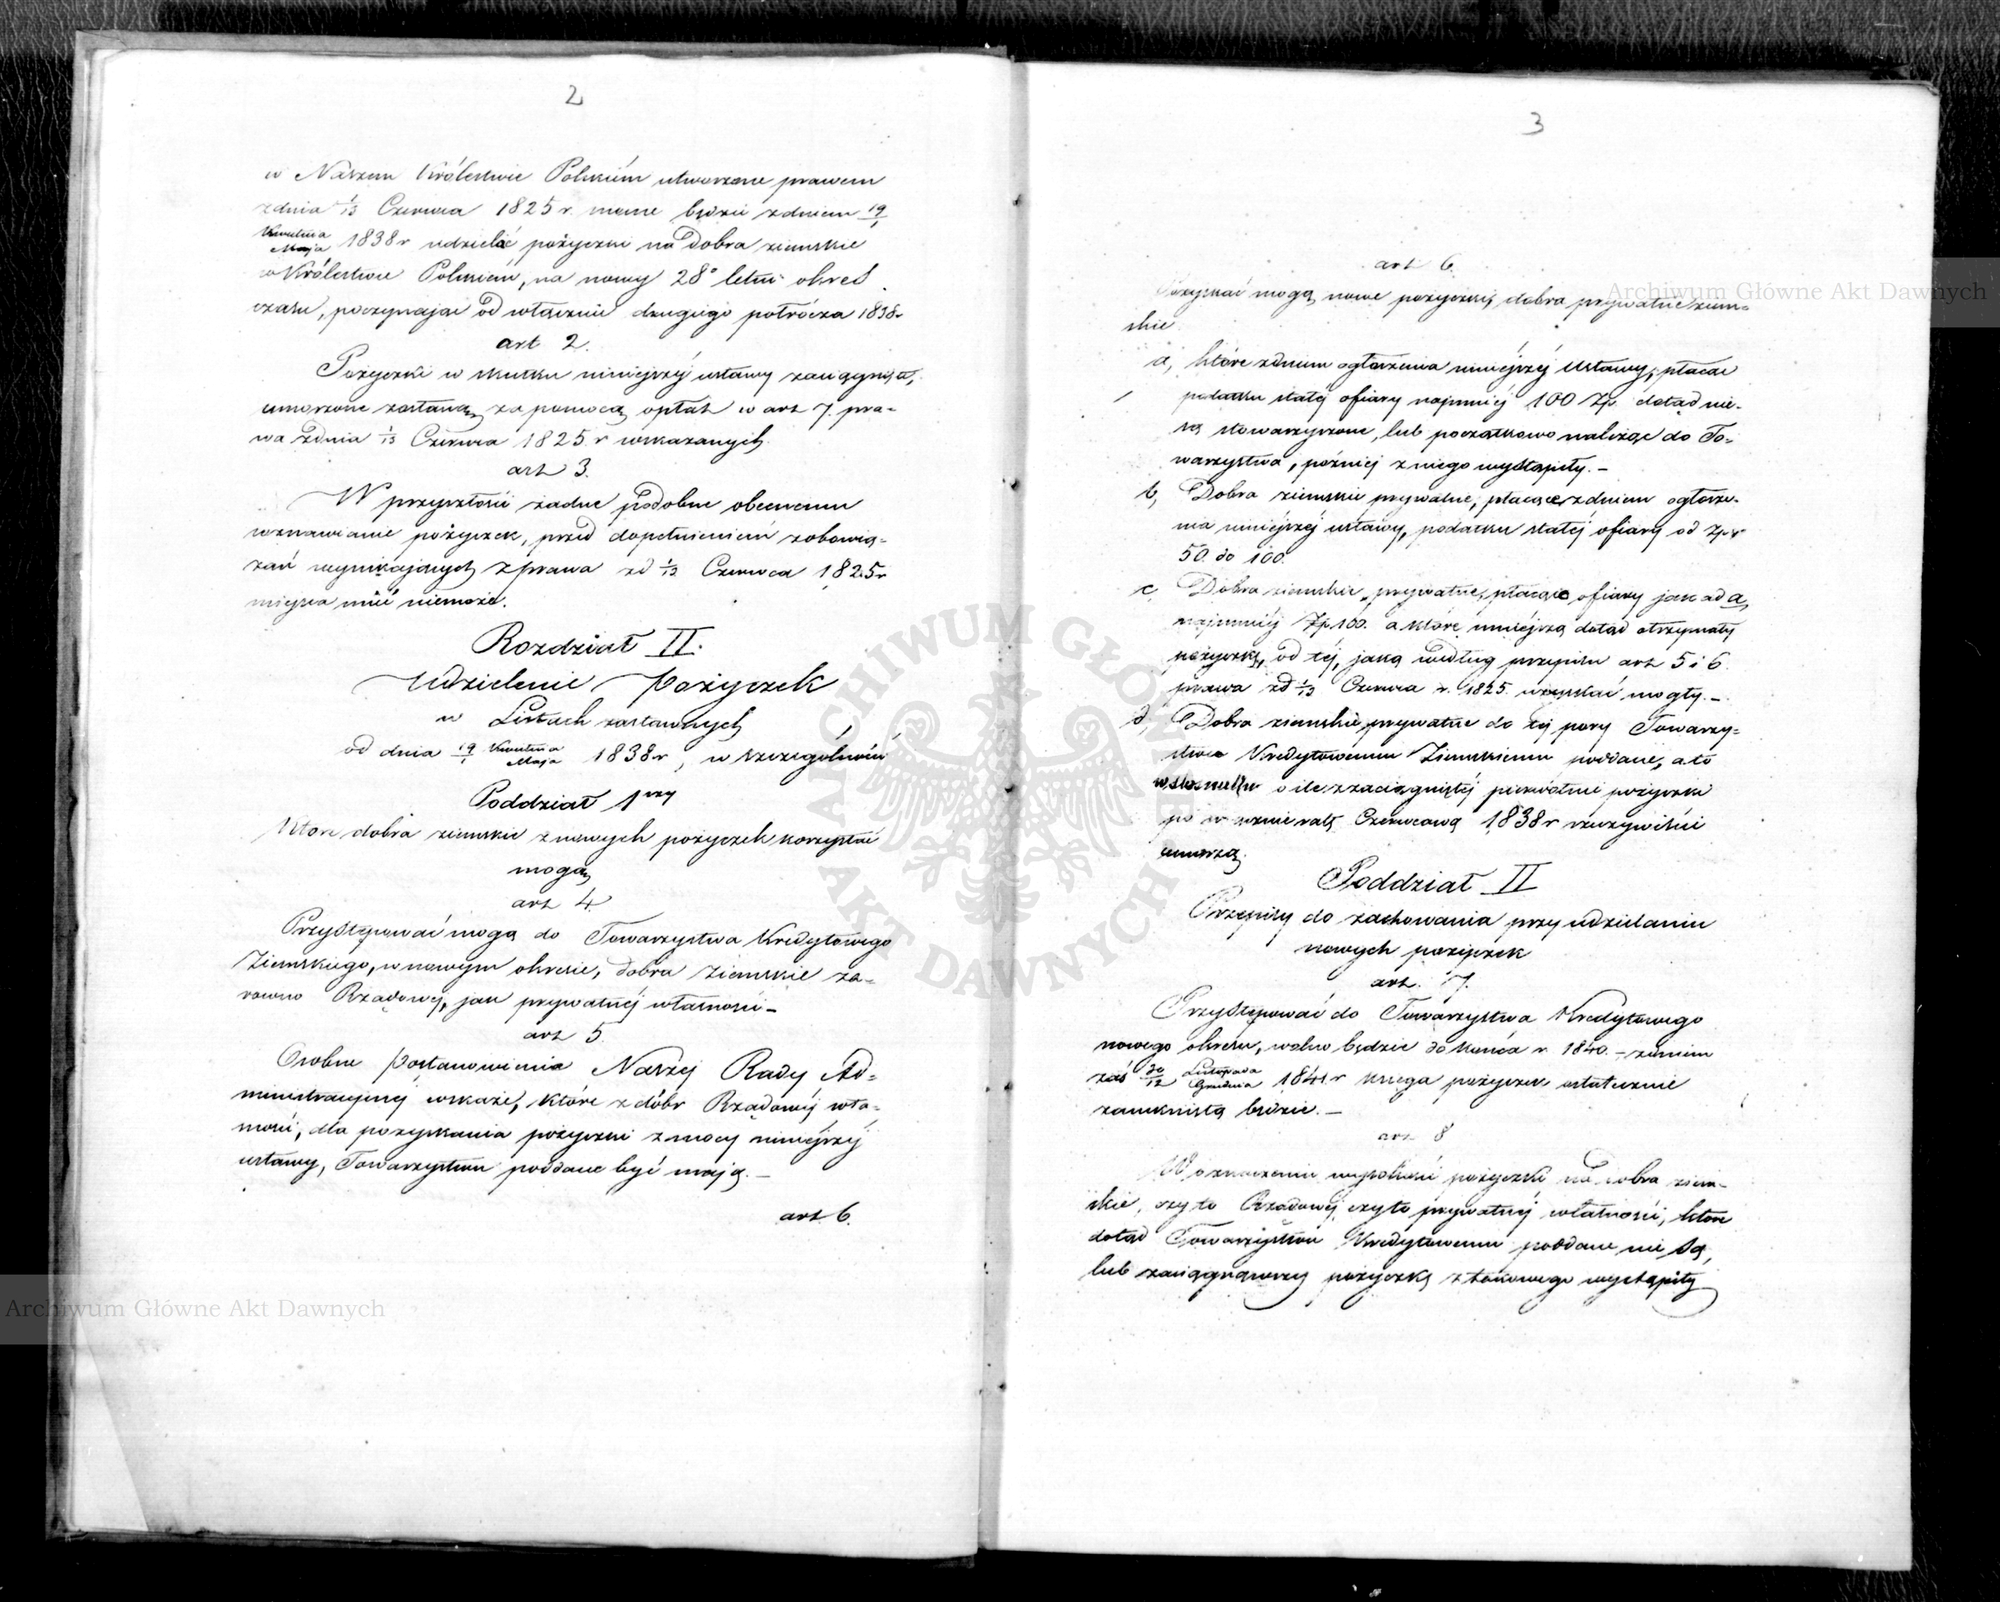 2
w Naszem Królestwie Polskiém utworzone prawem
z dnia 1/13 Czerwca 1825 r. mocne będzie z dniem 19/1
Kwietnia/Maja 1838 r udzielać pożyczki na Dobra ziemskie
w Królestwie Polskiém, na nowy 28º letni okres
czasu, poczynając od włącznie drugiego półrócza 1838.
art 2.
Pożyczki w skutku niniejszéj ustawy zaciągnięte,
umorzone zostaną za pomocą opłat w art 7. pra-
wa z dnia 1/13 Czerwca 1825 r wskazanych.
art 3.
W przyszłości żadne podobne obecnemu
wznawianie pożyczek, przed dopełnieniem zobowią-
zań wynikających z prawa z d 1/13 Czerwca 1825 r
miejsca mieć niemoże.
Rozdział II.
Udzielenie Pożyczek
w Listach zastawnych
od dnia 19/1 Kwietnia/Maja 1838 r, w szczególności
Poddział 1wszy
Które dobra ziemskie z nowych pożyczek korzystać
mogą
art 4.
Przystępować mogą do Towarzystwa Kredytowego
Ziemskiego, w nowym okresie, dobra ziemskie za-
rowno Rządowej, jak prywatnéj własności –
art 5.
Osobne postanowienia Naszéj Rady Ad-
ministracyjnéj wskaże, które z dóbr Rządowéj wła-
sności, dla pozyskania pożyczki z mocy niniejszéj
ustawy, Towarzystwu poddane być mają. –
art 6.
3
art 6.
Pozyskać mogą nowe pożyczki, dobra prywatne ziem-
skie.
a, które z dniem ogłoszenia niniejszéj Ustawy, płacąc
podatku stałéj ofiary najmniéj 100 Zp. dotąd nie-
są stowarzyszone, lub początkowo należąc do To-
warzystwa, późniéj z niego wystąpiły. –
b, Dobra ziemskie prywatne, płacące z dniem ogłosze-
nia niniejszéj ustawy, podatku stałéj ofiary od Zp.
50. do 100.
c, Dobra ziemskie, prywatne, płacące ofiary jak ad a,
najmniéj Zp 100. a które mniejszą dotąd otrzymały
pożyczkę, od téj, jaką według przepisu art 5 i 6.
prawa z d 1/13 Czerwca r. 1825. uzyskać mogły. –
d, Dobra ziemskie prywatne do téj pory Towarzy-
stwu Kredytowemu Ziemskiemu poddane, a to
w stosunku o ile z zaciągniętéj pierwotnie pożyczki
po w ratę Czerwcową 1838 r rzeczywiście
umorzą.
Poddział II
Przepisy do zachowania przy udzielaniu
nowych pożyczek
art. 7.
Przystępować do Towarzystwa Kredytowego
nowego okresu, wolno będzie do końca r. 1840. – z dniem
zaś 30/12 Listopada/Grudnia 1841 r księga pożyczek ostatecznie
zamkniętą będzie. –
art 8
W oznaczeniu wysokości pożyczki na dobra ziem-
skie, czy to Rządowéj, czy to prywatnéj własności, które
dotąd Towarzystwu Kredytowemu poddane nie są,
lub zaciągnąwszy pożyczkę z takowego wystąpiły
ARCHIWUM GŁÓWNE AKT DAWNYCH
Archiwum Główne Akt Dawnych
Archiwum Główne Akt Dawnych